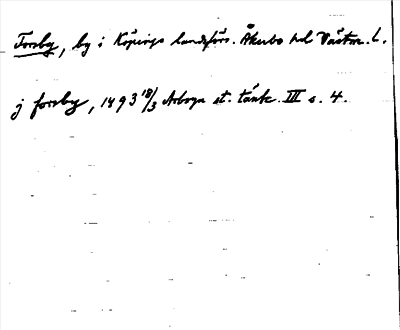 Forsby, by i Köpings landsförs. Åkerbo hd Västm. L.
j forsby, 1493 18/3 Arboga st. tänk. III s. 4.